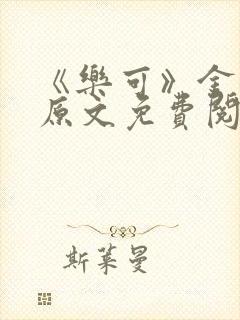 《樂可》全
原文免費閱
斯萊曼